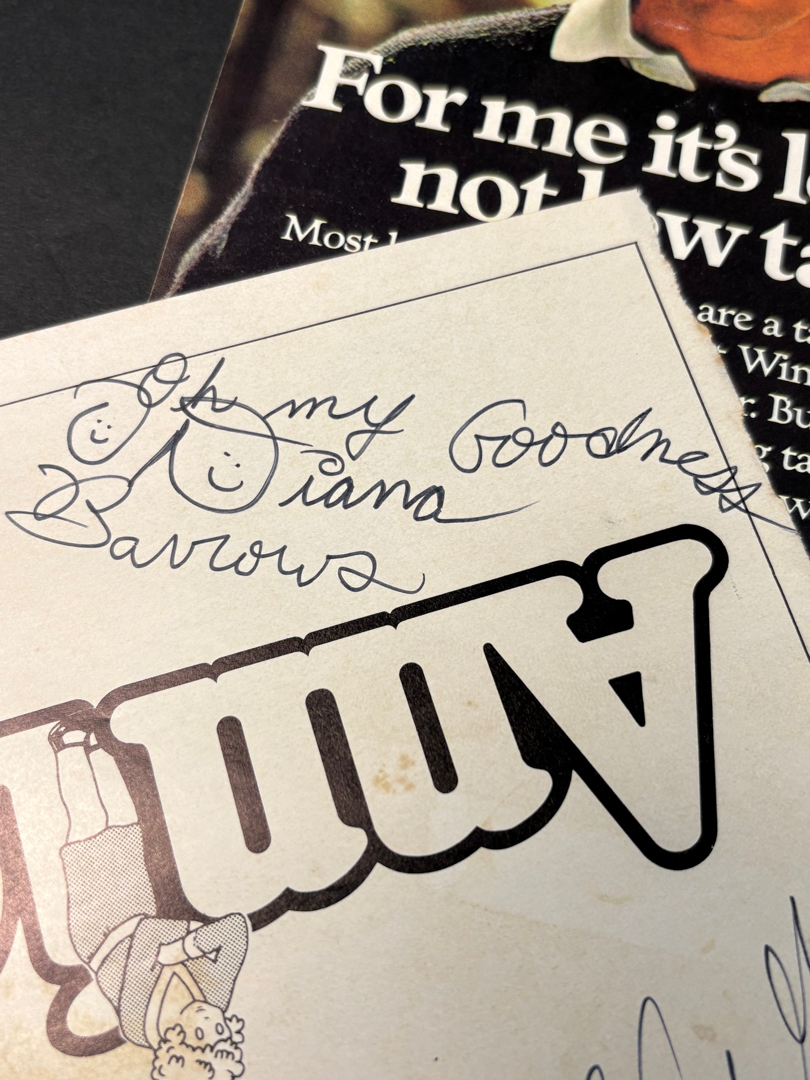 For me it's
not low ta
Most
are a ta
Win
r. Bu
g ta
w
Oh my Goodness
Diana
Barrows
Ann